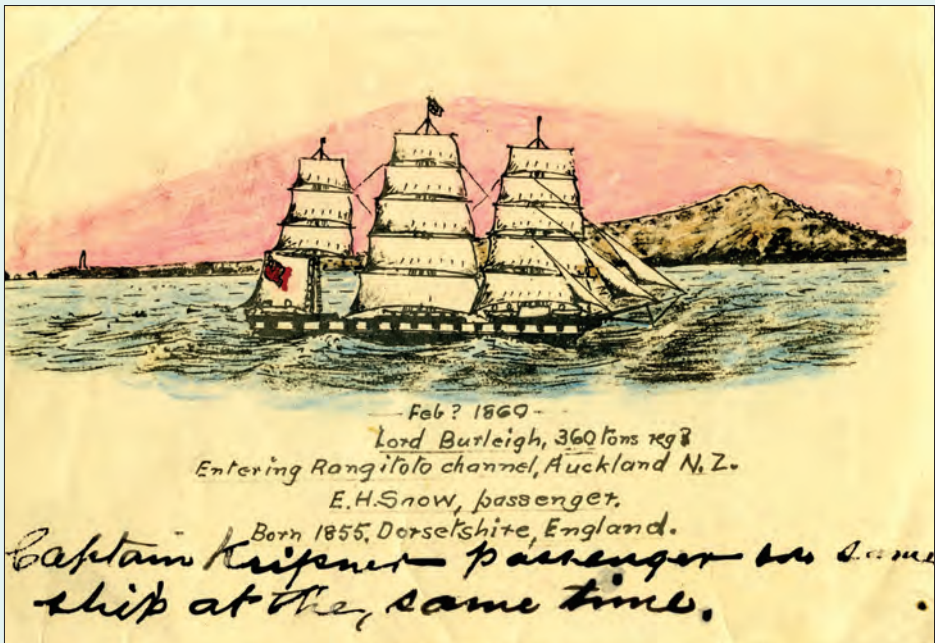 - Feb ? 1860 -
Lord Burleigh, 360 tons reg?
Entering Rangitoto channel, Auckland N.Z.
E.H.Snow, passenger.
Born 1855, Dorsetshire, England.
Captain Kripner passenger on same
ship at the, same time.